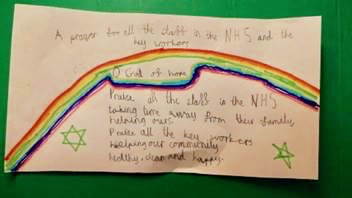 A prayer for all the staff in the NHS and the
key workers
O God of home
Praise all the staff in the NHS
taking time away from their family,
helping ours.
Praise all the key workers
Helping our community,
healthy, clean and happy.